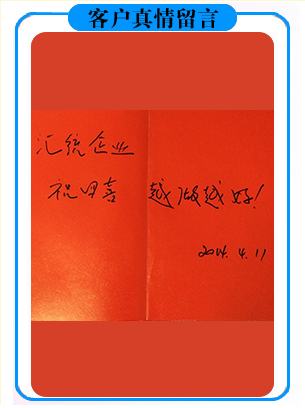 客户真情留言
汇统企业
祝田喜 越做越好!
2014.4.11